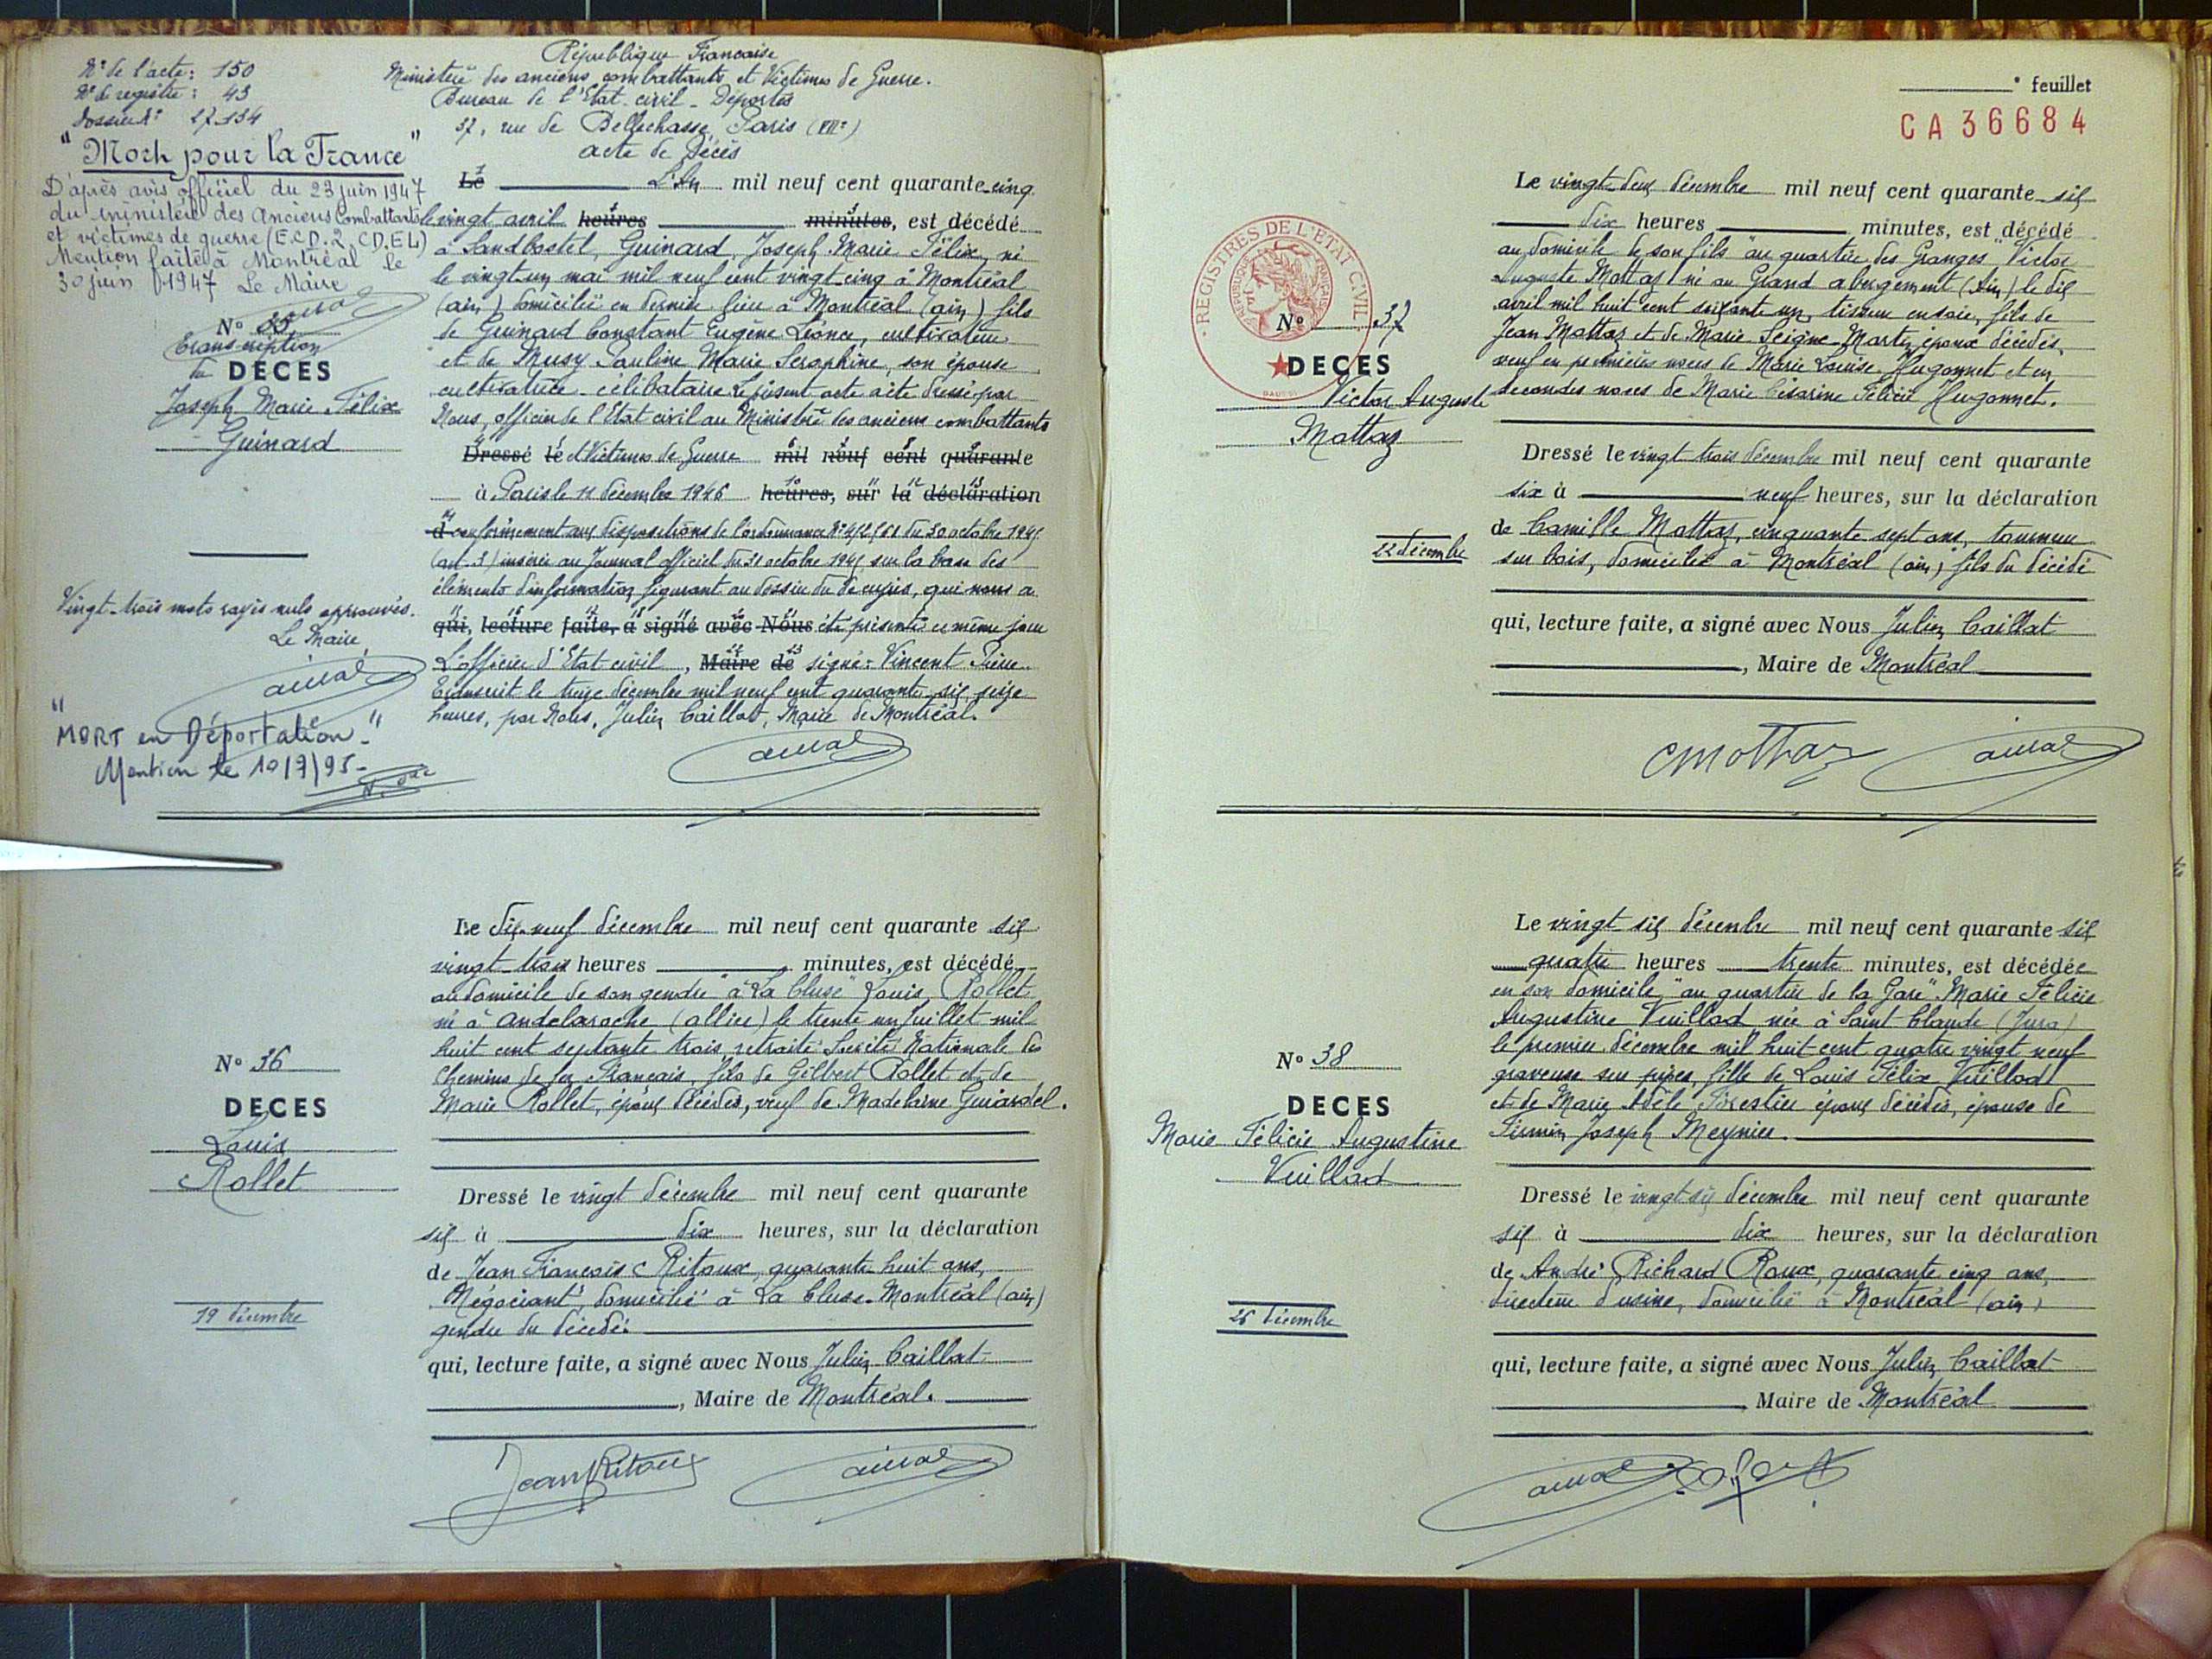 N° de l'acte: 150
N° de registre: 43
Dossier N° 27.134
"Mort pour la France"
D'après avis officiel du 23 juin 1947
du ministère des Anciens Combattants
et victimes de guerre (E.C.D. 2. C.D.E4)
Mention faite à Montréal le
30 juin 1947 Le Maire
N° 35
transcription
de DÉCÈS
Joseph Marie Félix
Guinard
Vingt-trois mots rayés nuls approuvés.
Le Maire
"MORT en Déportation"
Mention le 10/7/95-
République Francaise
Ministère des anciens combattants et Victimes de Guerre.
Bureau de l'Etat-civil - Déportés
37, rue de Bellechasse, Paris (VII°)
acte de Décès
Le L'An mil neuf cent quarante-cinq
le vingt avril heures minutes, est décédé
à Sandbostel, Guinard, Joseph Marie Félix, né
le vingt un mai mil neuf cent vingt cinq à Montréal
(ain) domicilié en dernier lieu à Montréal (ain) fils
de Guinard Constant Eugène Léonce, cultivateur
et de Musy Pauline Marie Séraphine, son épouse
cultivatrice - célibataire. Le présent acte a été dressé par
Nous, officier de l'Etat civil au Ministère des anciens combattants
Dressé le et Victimes de Guerre mil neuf cent quarante
à Paris le 11 décembre 1946 heures, sur la déclaration
d conformément aux dispositions de l'ordonnance N° 45/2561 du 30 octobre 1945
(art. 3) insérée au Journal officiel du 31 octobre 1945 sur la base des
éléments d'information figurant au dossier du de cujus, qui nous a
qui, lecture faite, a signé avec Nous été présenté ce même jour
L'officier d'Etat-civil, Maire de signé: Vincent Pierre
Transcrit le treize décembre mil neuf cent quarante six, seize
heures, par Nous, Julien Caillat, Maire de Montréal.
N° 36
DECES
Louis
Rollet
19 décembre
Le dix-neuf décembre mil neuf cent quarante six
vingt-trois heures minutes, est décédé
au domicile de son gendre "à La Cluse" Louis Rollet
né à Andelaroche (allier) le trente un juillet mil
huit cent septante trois, retraité Société Nationale des
Chemins de fer Français, fils de Gilbert Rollet et de
Marie Rollet, époux décédés, veuf de Madeleine Guiardel.
Dressé le vingt décembre mil neuf cent quarante
six à dix heures, sur la déclaration
de Jean François Ritoux, quarante huit ans,
Négociant, domicilié à La Cluse-Montréal (ain)
gendre du décédé.
qui, lecture faite, a signé avec Nous Julien Caillat
, Maire de Montréal.
Jean Ritoux
° feuillet
CA 36684
REGISTRES DE L'ETAT CIVIL
REPUBLIQUE FRANÇAISE
N° 37
DECES
Victor Auguste
Mottaz
22 décembre
Le vingt-deux décembre mil neuf cent quarante-six
dix heures minutes, est décédé
au domicile de son fils "au quartier des Granges" Victor
Auguste Mottaz né au Grand abergement (Ain) le dix
avril mil huit cent soixante un, tisseur en soie, fils de
Jean Mottaz et de Marie Seigne-Martin, époux décédés,
veuf en premières noces de Marie Louise Hugonnet et en
secondes noces de Marie Césarine Félicie Hugonnet.
Dressé le vingt trois décembre mil neuf cent quarante
six à neuf heures, sur la déclaration
de Camille Mottaz, cinquante sept ans, tourneur
sur bois, domicilié à Montréal (ain) fils du décédé
qui, lecture faite, a signé avec Nous Julien Caillat
, Maire de Montréal
CMottaz
N° 38
DECES
Marie Félicie Augustine
Vuillod
26 décembre
Le vingt six décembre mil neuf cent quarante six
quatre heures trente minutes, est décédée
en son domicile "au quartier de la Gare" Marie Félicie
Augustine Vuillod née à Saint Claude (Jura)
le premier décembre mil huit cent quatre vingt neuf
graveuse sur pipes, fille de Louis Félix Vuillod
et de Marie Adèle Forestier époux décédés, épouse de
Firmin Joseph Meynier.
Dressé le vingt six décembre mil neuf cent quarante
six à dix heures, sur la déclaration
de André Richard Roux, quarante cinq ans,
directeur d'usine, domicilié à Montréal (ain)
qui, lecture faite, a signé avec Nous Julien Caillat
Maire de Montréal